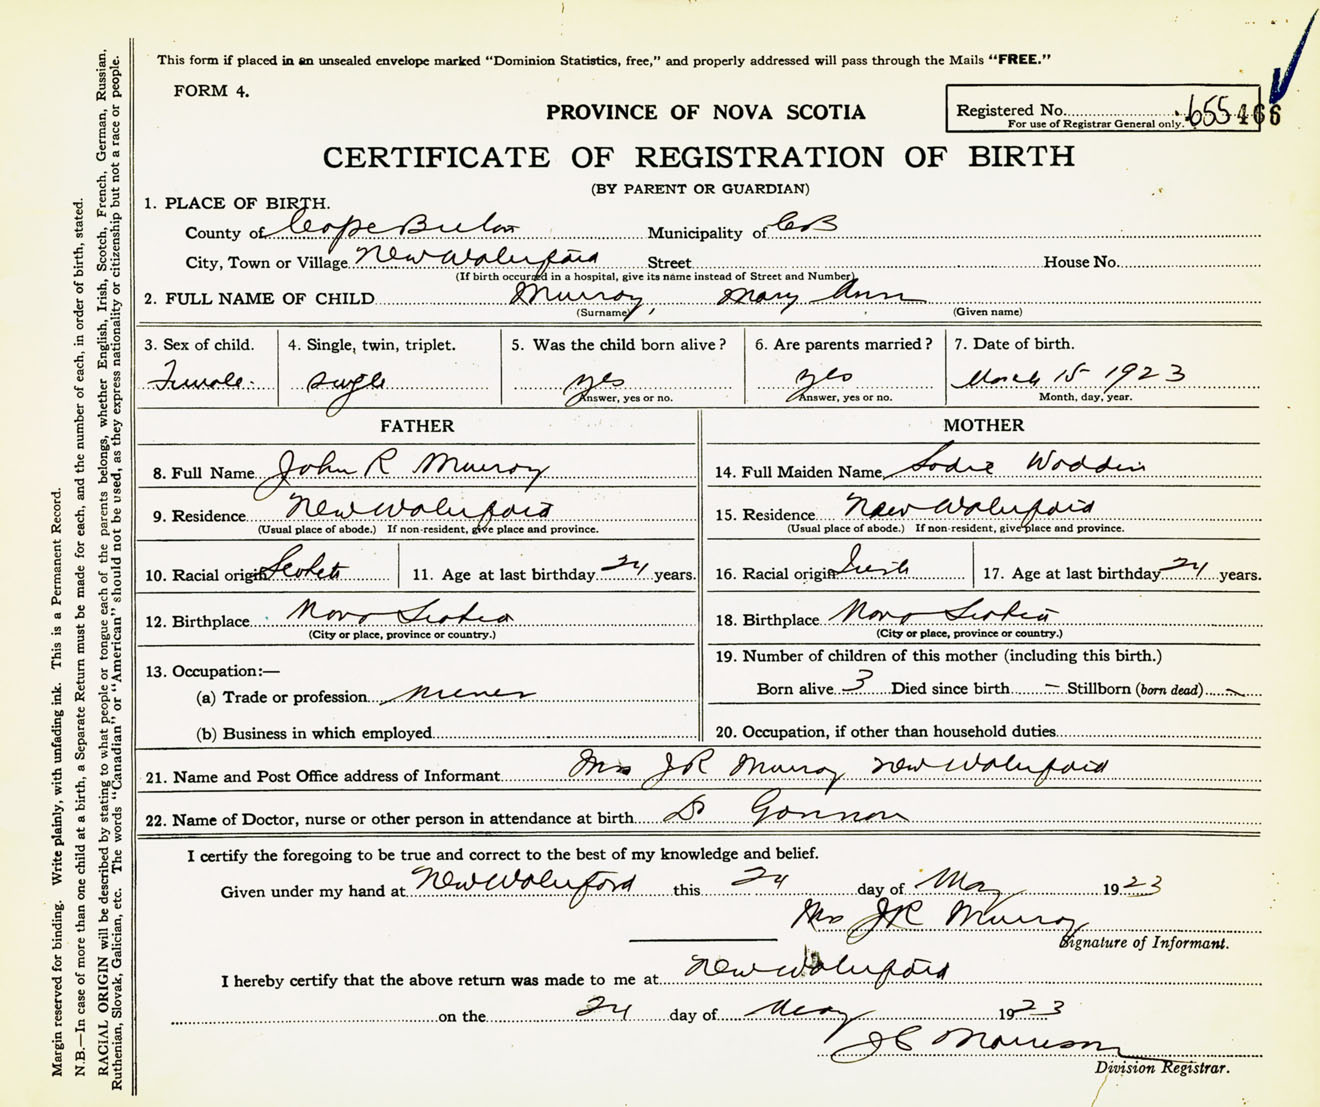 This form if placed in an unsealed envelope marked "Dominion Statistics, free," and properly addressed will pass through the Mails "FREE."
FORM 4.
PROVINCE OF NOVA SCOTIA
Registered No. 655 466
For use of Registrar General only.
CERTIFICATE OF REGISTRATION OF BIRTH
(BY PARENT OR GUARDIAN)
1. PLACE OF BIRTH.
County of Cape Breton Municipality of CB
City, Town or Village New Waterford Street House No.
(If birth occurred in a hospital, give its name instead of Street and Number)
2. FULL NAME OF CHILD Murray, Mary Ann
(Surname) (Given name)
3. Sex of child. 4. Single, twin, triplet. 5. Was the child born alive? 6. Are parents married? 7. Date of birth.
Female single yes yes March 15 1923
Answer, yes or no. Answer, yes or no. Month, day, year.
FATHER MOTHER
8. Full Name John R Murray 14. Full Maiden Name Sadie
9. Residence New Waterford 15. Residence New Waterford
(Usual place of abode.) If non-resident, give place and province. (Usual place of abode.) If non-resident, give place and province.
10. Racial origin Scotch 11. Age at last birthday 24 years. 16. Racial origin Irish 17. Age at last birthday 24 years.
12. Birthplace Nova Scotia 18. Birthplace Nova Scotia
(City or place, province or country.) (City or place, province or country.)
13. Occupation:— 19. Number of children of this mother (including this birth.)
(a) Trade or profession miner Born alive 3 Died since birth — Stillborn (born dead) —
(b) Business in which employed 20. Occupation, if other than household duties
21. Name and Post Office address of Informant Mrs JR Murray New Waterford
22. Name of Doctor, nurse or other person in attendance at birth Dr
I certify the foregoing to be true and correct to the best of my knowledge and belief.
Given under my hand at New Waterford this 24 day of May 1923
Mrs JR Murray
Signature of Informant.
I hereby certify that the above return was made to me at New Waterford
on the 24 day of May 1923
JC Morrison
Division Registrar.
Margin reserved for binding. Write plainly, with unfading ink. This is a Permanent Record.
N.B.—In case of more than one child at a birth, a Separate Return must be made for each, and the number of each, in order of birth, stated.
RACIAL ORIGIN will be described by stating to what people or tongue each of the parents belongs, whether English, Irish, Scotch, French, German, Russian,
Ruthenian, Slovak, Galician, etc. The words "Canadian" or "American" should not be used, as they express nationality or citizenship but not a race or people.